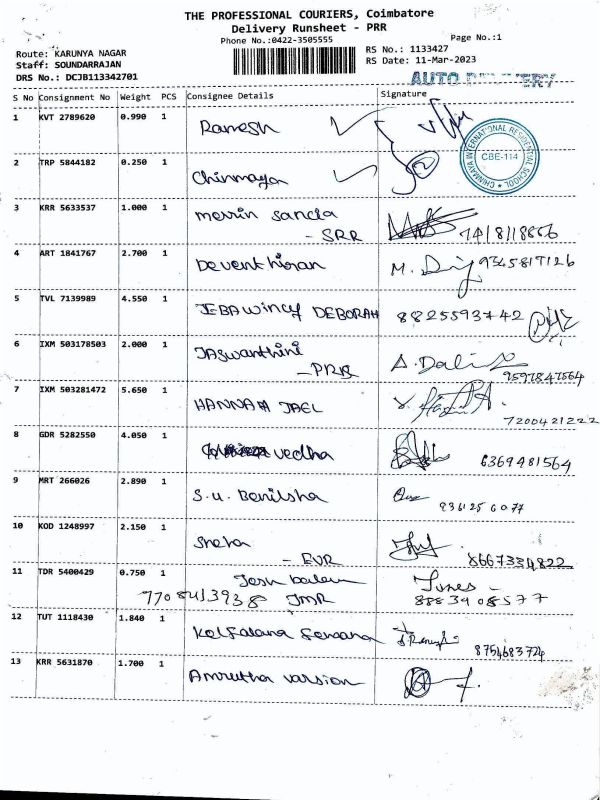 THE PROFESSIONAL COURIERS, Coimbatore
Delivery Runsheet - PRR
Phone No.:0422-3505555
Page No.:1
Route: KARUNYA NAGAR
RS No.: 1133427
Staff: SOUNDARRAJAN
RS Date: 11-Mar-2023
DRS No.: DCJB113342701
AUTO DELIVERY
S No Consignment No Weight PCS Consignee Details Signature
1 KVT 2789620 0.990 1 Ramesh
CHINMAYA INTERNATIONAL RESIDENTIAL SCHOOL
CBE-114
2 TRP 5844182 0.250 1 Chinmaya
3 KRR 5633537 1.000 1 merrin sancla
- SRR
4 ART 1841767 2.700 1 Devent hiran M. 9345817126
5 TVL 7139989 4.550 1 JEBA wincy DEBORAH 8825593742
6 IXM 503178503 2.000 1 Jaswanthini
- PRR 9597847564
7 IXM 503281472 5.650 1 HANNAH JAEL
7200421222
8 GDR 5282550 4.050 1 vedha 6369481564
9 MRT 266026 2.890 1 S.u. Benilsha
9361256077
10 KOD 1248997 2.150 1 Sneha
- EVR 8667334822
11 TDR 5400429 0.750 1
7708413938 JMR 8883908577
12 TUT 1118430 1.840 1
8754683724
13 KRR 5631870 1.700 1 Amrutha varsion